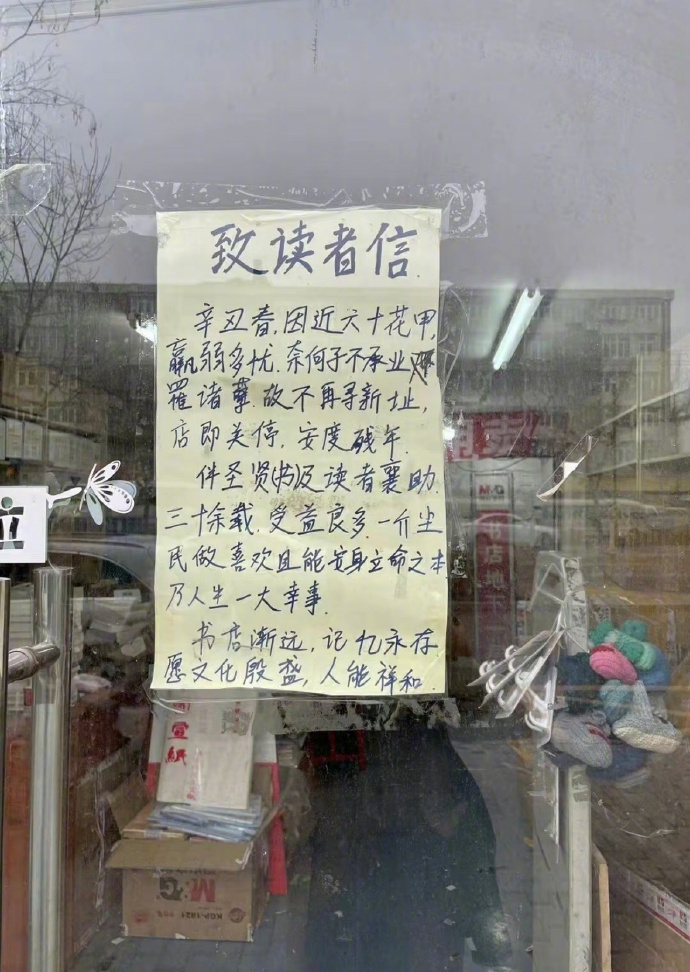 致读者信
辛丑春,因近六十花甲,
羸弱多忧.奈何子不承业
罹诸孽.故不再寻新址,
店即关停.安度残年.
伴圣贤(书)及读者襄助
三十余载.受益良多.一介尘
民做喜欢且能安身立命之本
乃人生一大幸事.
书店渐远,记忆永存
愿文化殷盛,人能祥和
宣紙
M&G
书店地下
M&G
KGP-1821